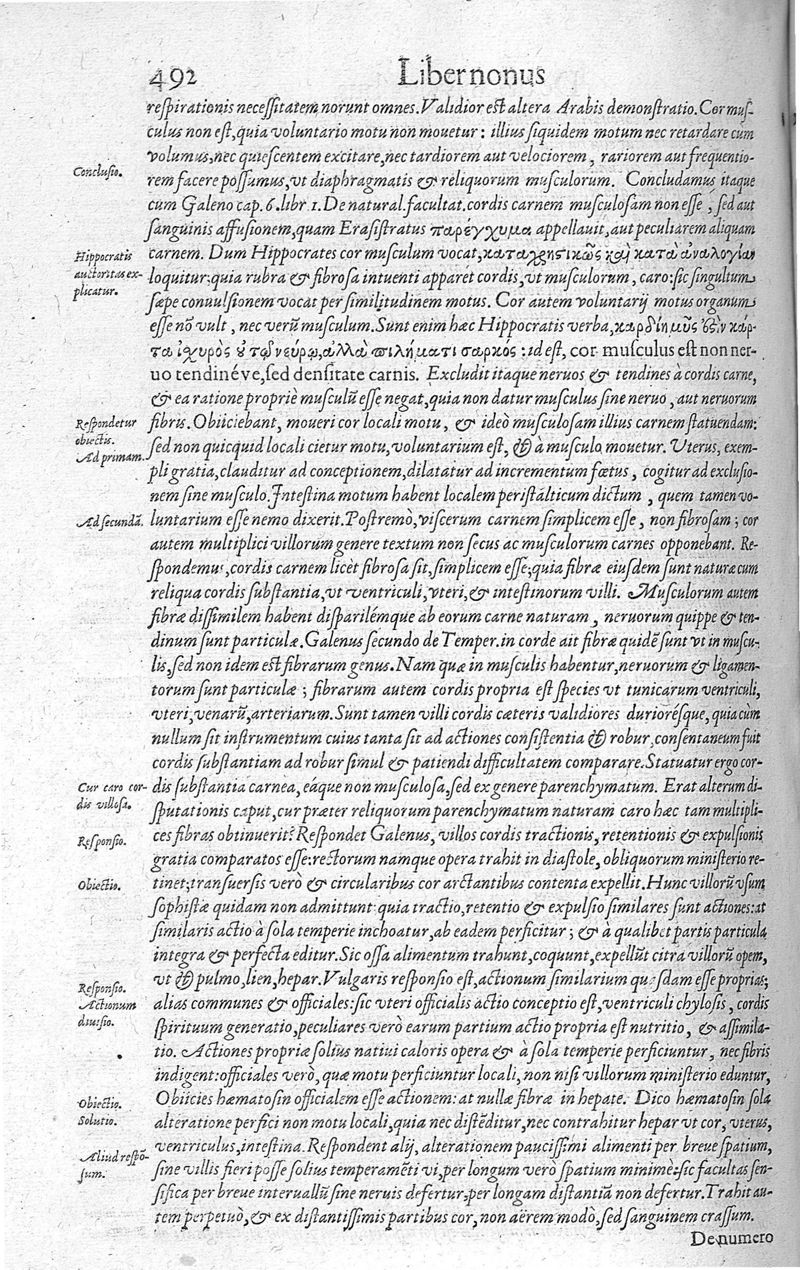 492 Liber nonus
respirationis necessitatem norunt omnes. Validior est altera Arabis demonstratio. Cor mus-
culus non est, quia voluntario motu non mouetur: illius siquidem motum nec retardare cum
volumus, nec quiescentem excitare, nec tardiorem aut velociorem, rariorem aut frequentio-
Conclusio.
rem facere possumus, vt diaphragmatis & reliquorum musculorum. Concludamus itaque
cum Galeno cap. 6. libr. 1. De natural. facultat. cordis carnem musculosam non esse, sed aut
sanguinis affusionem, quam Erasistratus παρέγχυμα appellauit, aut peculiarem aliquam
Hippocratis
auctoritas ex-
plicatur.
carnem. Dum Hippocrates cor musculum vocat, καταχρηστικῶς καὶ κατὰ ἀναλογίαν
loquitur: quia rubra & fibrosa intuenti apparet cordis, vt musculorum, caro: sic singultum
sæpe conuulsionem vocat per similitudinem motus. Cor autem voluntarij motus organum
esse nō vult, nec verū musculum. Sunt enim hæc Hippocratis verba, καρδίη μῦς ἐστὶν κάρ-
τα ἰχυρὸς ȣ τῷ νεύρῳ, ἀλλὰ πιλήματι σαρκός: id est, cor musculus est non ner-
uo tendinéve, sed densitate carnis. Excludit itaque neruos & tendines à cordis carne,
& ea ratione propriè musculū esse negat, quia non datur musculus sine neruo, aut neruorum
Respondetur
obiectis.
Ad primam.
fibris. Obiiciebant, moueri cor locali motu, & ideò musculosam illius carnem statuendam:
sed non quicquid locali cietur motu, voluntarium est, & à musculo mouetur. Uterus, exem-
pli gratia, clauditur ad conceptionem, dilatatur ad incrementum fœtus, cogitur ad exclusio-
nem sine musculo. Intestina motum habent localem peristálticum dictum, quem tamen vo-
Ad secundā.
luntarium esse nemo dixerit. Postremò, viscerum carnem simplicem esse, non fibrosam; cor
autem multiplici villorum genere textum non secus ac musculorum carnes opponebant. Re-
spondemus, cordis carnem licèt fibrosa sit, simplicem esse; quia fibræ eiusdem sunt naturæ cum
reliqua cordis substantia, vt ventriculi, vteri, & intestinorum villi. Musculorum autem
fibræ dissimilem habent disparilémque ab eorum carne naturam, neruorum quippe & ten-
dinum sunt particulæ. Galenus secundo de Temper. in corde ait fibræ quidē sunt vt in muscu-
lis, sed non idem est fibrarum genus. Nam quæ in musculis habentur, neruorum & ligamen-
torum sunt particulæ; fibrarum autem cordis propria est species vt tunicarum ventriculi,
vteri, venarū, arteriarum. Sunt tamen villi cordis cæteris validiores durioresque, quia cùm
nullum sit instrumentum cuius tanta sit ad actiones consistentia & robur, consentaneum fuit
cordis substantiam ad robur simul & patiendi difficultatem comparare. Statuatur ergo cor-
Cur caro cor-
dis villosa.
dis substantia carnea, eáque non musculosa, sed ex genere parenchymatum. Erat alterum di-
sputationis caput, cur præter reliquorum parenchymatum naturam caro hæc tam multipli-
Responsio.
ces fibras obtinuerit? Respondet Galenus, villos cordis tractionis, retentionis & expulsionis
gratia comparatos esse: rectorum namque opera trahit in diastole, obliquorum ministerio re-
Obiectio.
tinet; transuersis verò & circularibus cor arctantibus contenta expellit. Hunc villorū vsum
sophistæ quidam non admittunt: quia tractio, retentio & expulsio similares sunt actiones: at
similaris actio à sola temperie inchoatur, ab eadem perficitur; & à qualibet partis particula
integra & perfecta editur. Sic ossa alimentum trahunt, coquunt, expellūt citra villorū opem,
Responsio.
Actionum
diuisio.
vt & pulmo, lien, hepar. Vulgaris responsio est, actionum similarium quasdam esse proprias;
alias communes & officiales: sic vteri officialis actio conceptio est, ventriculi chylosis, cordis
spirituum generatio, peculiares verò earum partium actio propria est nutritio, & assimila-
tio. Actiones propriæ solius natiui caloris opera & à sola temperie perficiuntur, nec fibris
indigent: officiales verò, quæ motu perficiuntur locali, non nisi villorum ministerio eduntur,
Obiectio.
Solutio.
Obiicies hæmatosin officialem esse actionem: at nullæ fibræ in hepate. Dico hæmatosin sola
alteratione perfici non motu locali, quia nec distēditur, nec contrahitur hepar vt cor, vterus,
Aliud respō-
sum.
ventriculus, intestina. Respondent alij, alterationem paucissimi alimenti per breue spatium,
sine villis fieri posse solius temperamēti vi, per longum verò spatium minimè: sic facultas sen-
sifica per breue interuallū sine neruis defertur, per longam distantiā non defertur. Trahit au-
tem perpetuò, & ex distantissimis partibus cor, non aërem modò, sed sanguinem crassum.
De numero